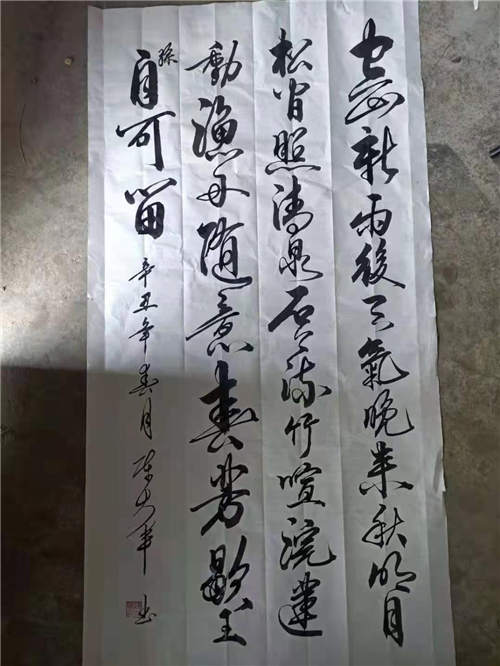 空山新雨後天氣晚來秋明月
松間照清泉石上流竹喧浣蓮
動漁舟隨意春芳歇王
孫自可留
辛丑年春月 書